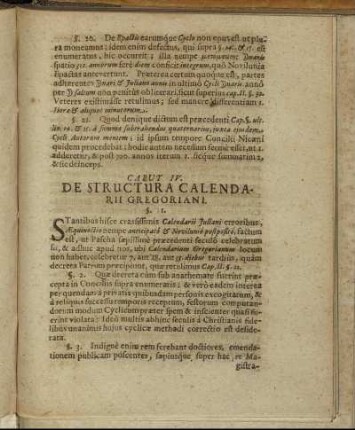 §. 20. De Epactis earumque Cyclo non opus est ut plura
moneamus: idem enim defectus, qui supra §. 16. & 17. est
enumeratus, hic occurrit; illa nempe
spatio 312. annorum fere diem conficit integrum, quo Novilunia
Epactas antevertant. Præterea certum quoque est, partes
adhærentes Lunari & Juliano anno in ultimo Cycli Lunaris anno
per Saltum non penitus obliterari, sicut superius cap. II. §. 32.
Veteres existimasse retulimus; sed manere differentiam 1.
horæ & aliquot minutorum.
§. 21. Quod denique dictum est præcedenti Cap. §. ultim.
& 17. à summa subtrahendos quaternarios, juxta ejusdem
Cycli Autorum mentem; id ipsum tempore Concilii Nicæni
quidem procedebat; hodie autem necesium secus esset, ut 1.
adderetur, & post 300. annos iterum 1. sicque summatim 2,
& sic deinceps.
CAPUT IV.
DE STRUCTURA CALENDA-
RII GREGORIANI.
§. 1.
STantibus hisce crassissimis Calendarii Juliani erroribus,
Æquinoctiis nempe anticipatis & Noviluniis postpositis, factum
est, ut Pascha sæpissime præcedenti seculo celebratum
sit, & adhuc apud nos, ubi Calendarium Gregorianum locum
non habet, celebretur 7. aut 28. aut 35. diebus tardius, quàm
decreta Patrum præcipiunt, quæ retulimus Cap. II. §. 21.
§. 2. Quæ decreta cum sub anathemate fuerint præcepta
in Conciliis supra enumeratis; & verò eadem interea
per quendam à privatis quibusdam personis excogitatum, &
à reliquis successu temporis receptum, festorum computandorum
modum Cyclicum præter spem & inscienter quasi fuerint
violata: Ideò multis abhinc seculis à Christianis fidelibus
unanimis hujus cyclicæ methodi correctio est desiderata.
§. 3. Indignè enim rem ferebant doctiores, emendationem
publicam poscentes, sæpiusque super hac re Ma-
gistra-